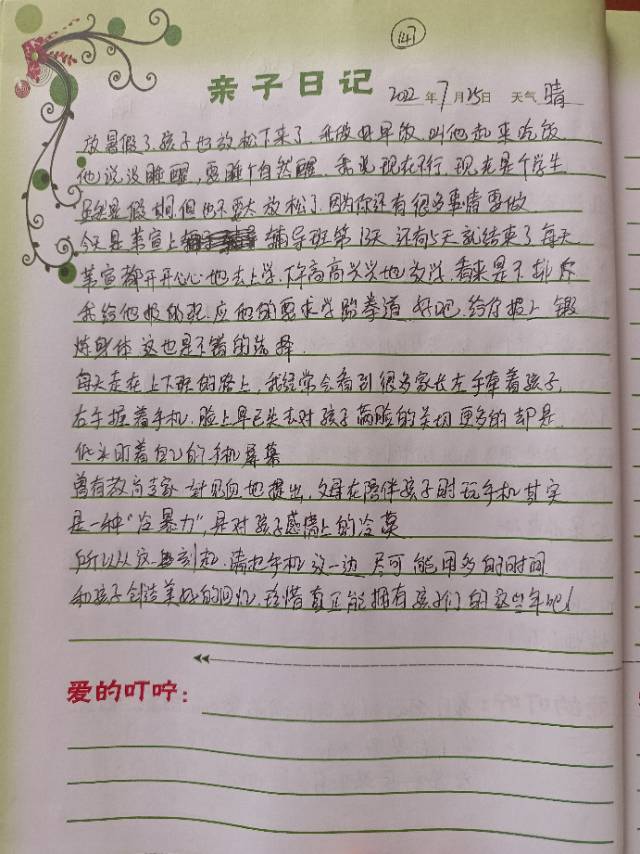 147
亲子日记 2022年7月25日 天气 晴
放暑假了孩子也放松下来了.我做好早饭叫他起来吃饭
他说没睡醒,要睡个自然醒.我说现在不行,现在是个学生
虽然是假期,但也不要太放松了.因为你还有很多事情要做
今天是苇宣上辅导班第13天还有5天就结束了每天
苇宣都开开心心地去上学,下午高高兴兴地放学,看来是不排斥
我给他报的班.应他的要求学跆拳道.好吧,给你报上锻
炼身体这也是不错的选择.
每天走在上下班的路上,我经常会看到很多家长左手牵着孩子,
右手握着手机.脸上早已失去对孩子满脸的关切更多的却是
低头盯着自己的手机屏幕
曾有教育专家一针见血地提出,父母在陪伴孩子时玩手机其实
是一种“冷暴力”,是对孩子感情上的冷漠
所以从这一刻起,请把手机放一边尽可能用多的时间
和孩子创造美好的回忆,珍惜真正能拥有孩子们的这些年吧!
爱的叮咛: